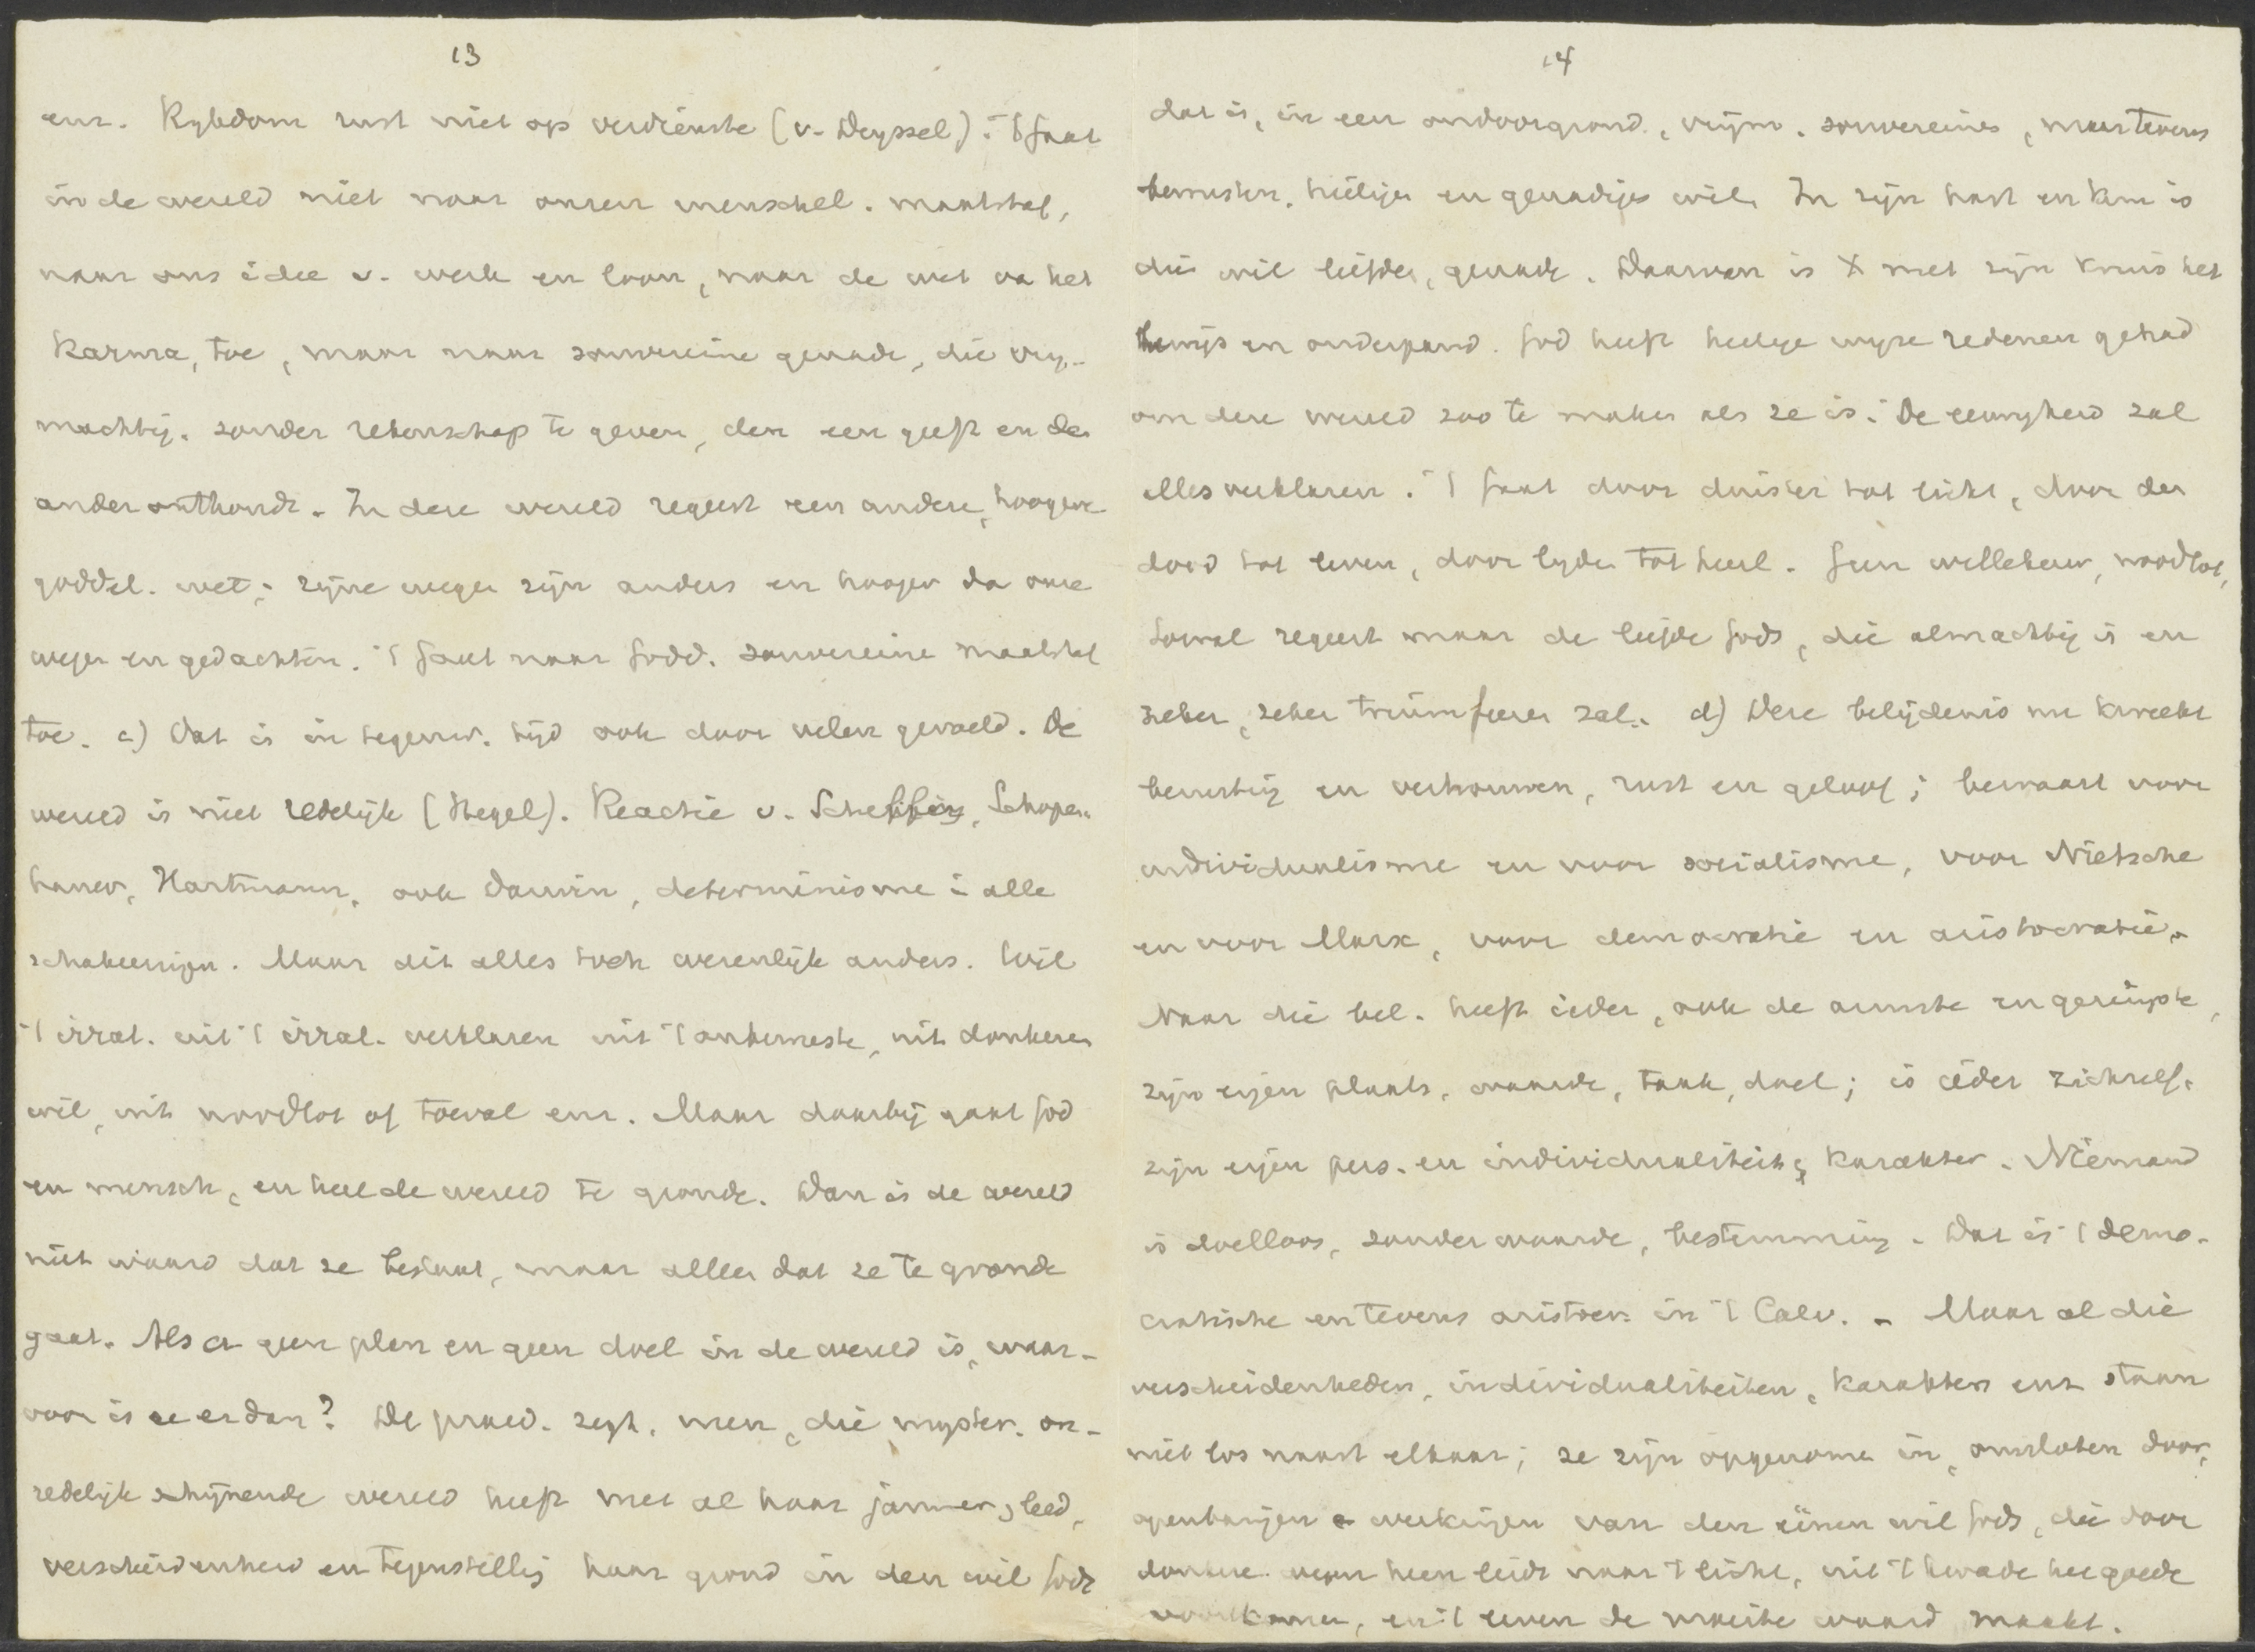 13
enz. Rykdom rust niet op verdienste (v. Deyssel). 't Gaat
in de wereld niet naar onzen menschel. maatstaf,
naar ons idee v. werk en loon, naar de wet va het
Karma, toe, maar naar souvereine genade, die vry-
machtig, zonder rekenschap te geven, den een geeft en de
ander onthoudt. In deze wereld regeert een andere, hoogere
goddel. wet; zijne wegen zijn anders en hooger da onze
wegen en gedachten. 't Gaat naar Godd. souvereine maatstaf
toe. c) Dat is in tegenw. tijd ook door velen gevoeld. De
wereld is niet redelijk (Hegel). Reactie v. Schelling, Schopen-
hauer, Hartmann, ook Darwin, determinisme i alle
schakeeringen. Maar dit alles toch wezenlijk anders. Wil
't irrat. uit 't irrat. verklaren uit 't onbewuste, uit donkeren
wil, uit noodlot of toeval enz. Maar daarbij gaat God
en mensch, en heel de wereld te gronde. Dan is de wereld
niet waard dat ze bestaat, maar alleen dat ze te gronde
gaat. Als er geen plan en geen doel in de wereld is, waar-
voor is ze er dan? De praed. zegt, neen, die myster. on-
redelijk schijnende wereld heeft met al haar jammer, leed,
verscheidenheid en tegenstelling haar grond in den wil Gods
14
dat is, in een ondoorgrond., vrijm. souvereinen, maar tevens
bewusten, heiligen en genadigen wil. In zijn hart en kern is
die wil liefde, genade. Daarvan is X met zijn kruis het
bewijs en onderpand. God heeft heilige wyze redenen gehad
om deze wereld zoo te maken als ze is. De eeuwigheid zal
alles verklaren. 't Gaat door duister tot licht, door den
dood tot leven, door lyden tot heil. Geen willekeur, noodlot,
toeval regeert maar de liefde Gods, die almachtig is en
zeker, zeker triumfeeren zal. d) Deze belijdenis nu kweekt
berusting en vertrouwen, rust en geloof; bewaart voor
individualisme en voor socialisme, voor Nietsche
en voor Marx, voor democratie en aristocratie.
Naar die bel. heeft ieder, ook de armste en geringste,
zijn eigen plaats, waarde, taak, doel; is ieder zichzelf.
zijn eigen pers. en individualiteit, karakter. Niemand
is doelloos, zonder waarde, bestemming. Dat is 't demo-
cratische en tevens aristocr. in 't Calv. - Maar al die
verscheidenheden, individualiteiten, karakters enz staan
niet los naast elkaar; ze zijn opgenomen in, omsloten door,
openbaringen e werkingen van den éénen wil Gods, die door
donkere wegen heen leidt naar 't licht, uit 't kwade het goede
voortkomen, en 't leven de moeite waard maakt.